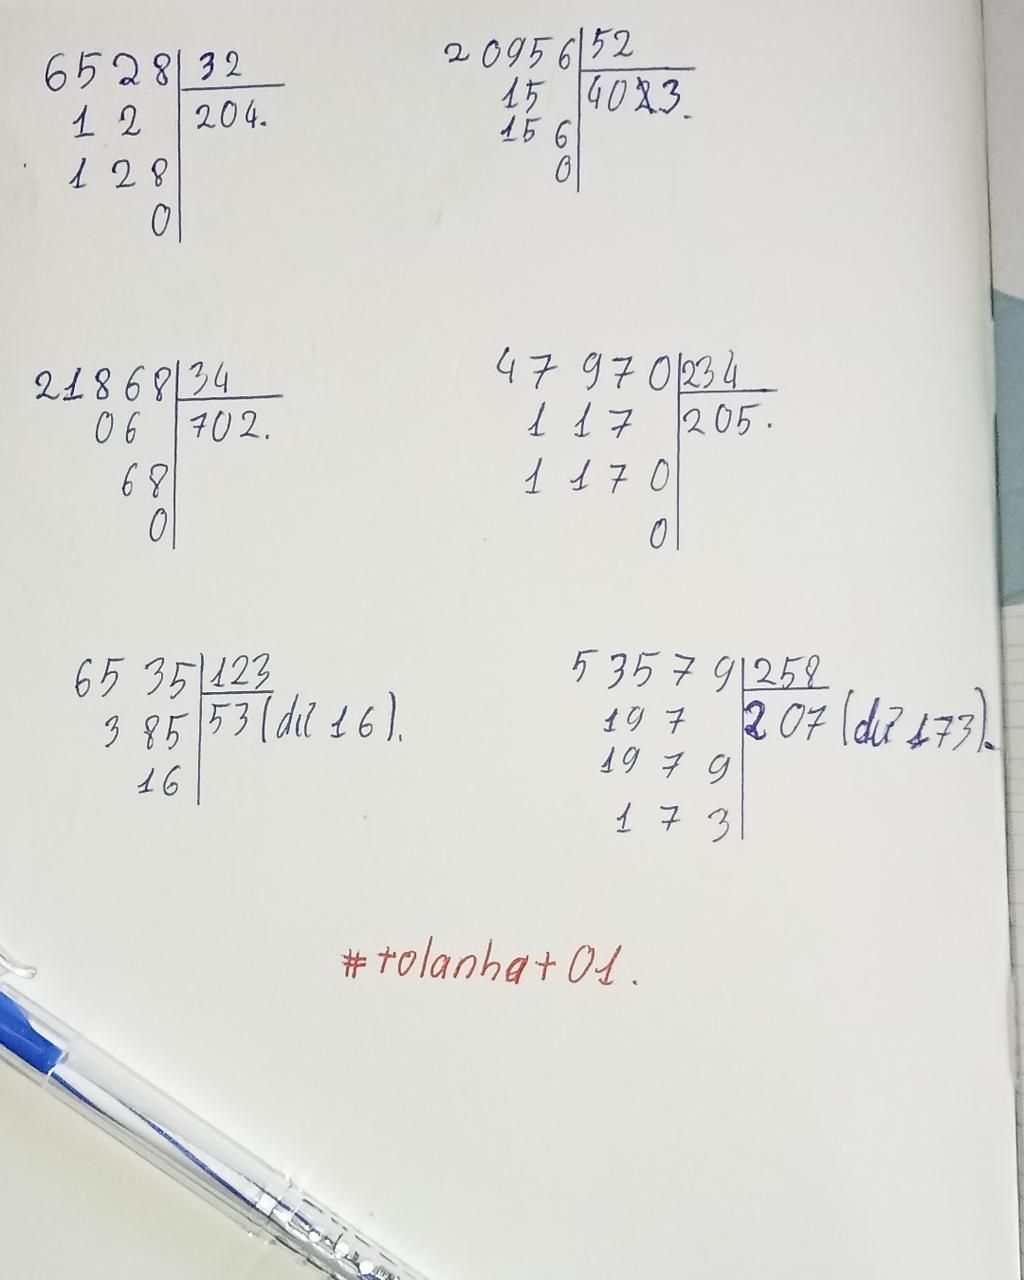 6528 32
12 204.
128
0
20956 52
15 403.
156
0
21868 34
06 702.
68
0
47970 234
117 205.
1170
0
6535 123
385 53 (dư 16).
16
53579 258
197 207 (dư 173).
1979
173
#tolanhat01.